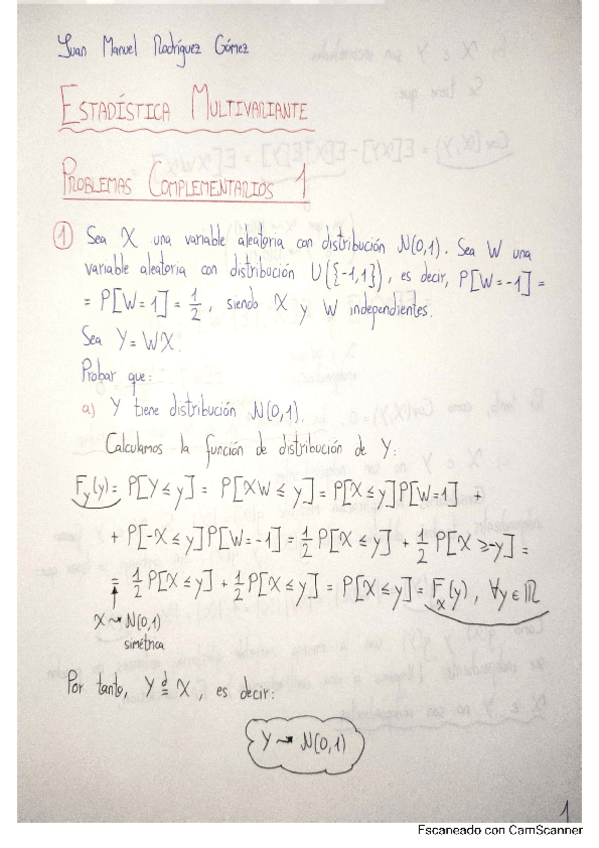 Juan Manuel Rodríguez Gómez
ESTADÍSTICA MULTIVARIANTE
PROBLEMAS COMPLEMENTARIOS 1
① Sea X una variable aleatoria con distribución N(0,1). Sea W una
variable aleatoria con distribución U({-1,1}), es decir, P[W=-1] =
= P[W=1] = 1/2, siendo X y W independientes.
Sea Y=WX.
Probar que:
a) Y tiene distribución N(0,1).
Calculamos la función de distribución de Y:
F_Y(y) = P[Y ≤ y] = P[XW ≤ y] = P[X ≤ y]P[W=1] +
+ P[-X ≤ y]P[W=-1] = 1/2 P[X ≤ y] + 1/2 P[X ≥ -y] =
= 1/2 P[X ≤ y] + 1/2 P[X ≤ y] = P[X ≤ y] = F_X(y), ∀y ∈ ℝ
↑
X ⇝ N(0,1)
simétrica
Por tanto, Y =^d X, es decir:
Y ⇝ N(0,1)
1
Escaneado con CamScanner